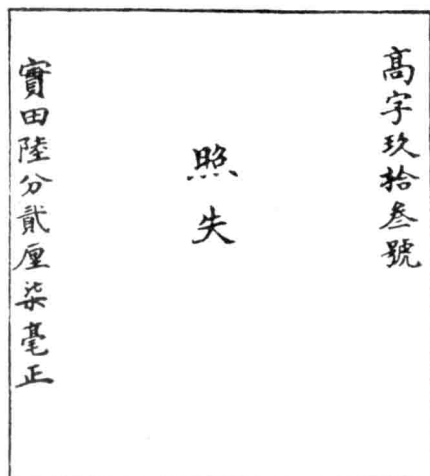 高字玖拾叁號
照失
實田陸分貳厘柒毫正